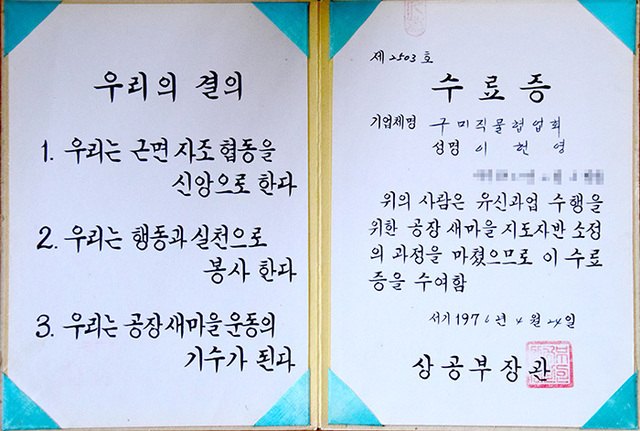 우리의 결의
1. 우리는 근면 자조 협동을
신앙으로 한다
2. 우리는 행동과 실천으로
봉사 한다
3. 우리는 공장 새마을 운동의
기수가 된다
제 2503 호
수 료 증
기업체명 구미직물협업회
성명 이 헌 영
위의 사람은 유신과업 수행을
위한 공장 새마을 지도자반 소정
의 과정을 마쳤으므로 이 수료
증을 수여함
서기 1976년 4월 24일
상 공 부 장 관